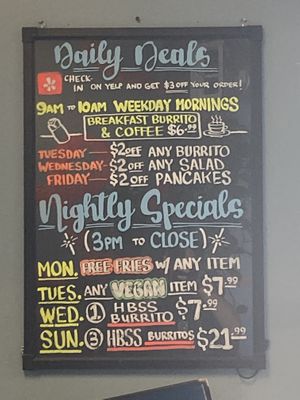 Daily Deals
CHECK-
IN ON YELP AND GET $3 OFF YOUR ORDER!
9AM TO 10AM WEEKDAY MORNINGS
BREAKFAST BURRITO
& COFFEE $6.99
TUESDAY $2 OFF ANY BURRITO
WEDNESDAY $2 OFF ANY SALAD
FRIDAY $2 OFF PANCAKES
Nightly Specials
(3PM TO CLOSE)
MON. FREE FRIES W/ ANY ITEM
TUES. ANY VEGAN ITEM $7.99
WED. 1 HBSS BURRITO $7.99
SUN. 3 HBSS BURRITOS $21.99